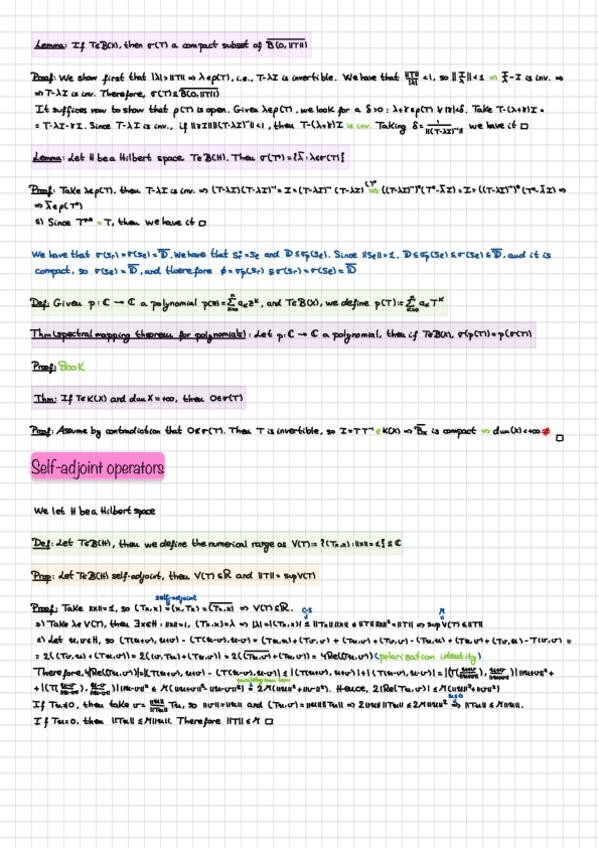 Lemma: If T∈B(X), then σ(T) a compact subset of B̅(0,||T||)
Proof: We show first that |λ|>||T|| ⇒ λ∈ρ(T), i.e., T-λI is invertible. We have that ||T||/|λ| <1, so ||T/λ||<1 ⇒ T/λ-I is inv. ⇒
⇒ T-λI is inv. Therefore, σ(T)⊆B̅(0,||T||)
It suffices now to show that ρ(T) is open. Given λ∈ρ(T), we look for a δ>0 : λ+r∈ρ(T) ∀|r|<δ. Take T-(λ+r)I =
= T-λI-rI. Since T-λI is inv., if ||rI||||(T-λI)⁻¹||<1, then T-(λ+r)I is inv. Taking δ= 1/||(T-λI)⁻¹|| we have it □
Lemma: Let H be a Hilbert space, T∈B(H). Then σ(T*)={λ̅ : λ∈σ(T)}
Proof: Take λ∈ρ(T), then T-λI is inv. ⇒ (T-λI)(T-λI)⁻¹=I=(T-λI)⁻¹(T-λI) ⇒ ((T-λI)⁻¹)*(T*-λ̅I)=I=((T-λI)⁻¹)*(T*-λ̅I) ⇒
⇒ λ̅∈ρ(T*)
⊆) Since T**=T, then we have it □
We have that σ(Sr)=σ(Se)=D̅. We have that Sr*=Se and D⊆σp(Se). Since ||Se||=1, D⊆σp(Se)⊆σ(Se)⊆D̅, and it is
compact, so σ(Se)=D̅, and therefore ϕ=σp(Sr)⊆σ(Sr)=σ(Se)=D̅
Def: Given p: ℂ → ℂ a polynomial p(z)=∑ aₖzᵏ, and T∈B(X), we define p(T):=∑ aₖTᵏ
Thm (spectral mapping theorem for polynomials): Let p: ℂ → ℂ a polynomial, then if T∈B(X), σ(p(T))=p(σ(T))
Proof: Book
Thm: If T∈K(X) and dim X=+∞, then 0∈σ(T)
Proof: Assume by contradiction that 0∉σ(T). Then T is invertible, so I=TT⁻¹∈K(X) ⇒ B̅x is compact ⇒ dim(X)<+∞ □
Self-adjoint operators
We let H be a Hilbert space
Def: Let T∈B(H), then we define the numerical range as V(T):={(Tx,x) : ||x||=1}⊆ℂ
Prop: Let T∈B(H) self-adjoint, then V(T)⊆ℝ and ||T||=sup V(T)
self-adjoint
Proof: Take ||x||=1, so (Tx,x)=(x,Tx)=(Tx,x)̅ ⇒ V(T)⊆ℝ.
≥) Take λ∈V(T), then ∃x∈H : ||x||=1, (Tx,x)=λ ⇒ |λ|=|(Tx,x)|≤||Tx||||x||≤||T||||x||²=||T|| ⇒ sup V(T)≤||T||
≤) Let u,v∈H, so (T(u+v),u+v) - (T(u-v),u-v) = (Tu,u)+(Tu,v)+(Tv,u)+(Tv,v)-(Tu,u)+(Tu,v)+(Tv,u)-T(v,v) =
= 2((Tu,v)+(Tv,u)) = 2((v,Tu)+(Tu,v)) = 2((Tu,v)̅+(Tu,v)) = 4Re((Tu,v)) (polarisation identity)
Therefore, 4|Re((Tu,v))|=|(T(u+v),u+v) - (T(u-v),u-v)| ≤ |(T(u+v),u+v)|+|(T(u-v),u-v)| = |(T(u+v/||u+v||),u+v/||u+v||)|||u+v||²+
+|(T(u-v/||u-v||),u-v/||u-v||)|||u-v||² ≤ M(||u+v||²+||u-v||²) = 2M(||u||²+||v||²). Hence, 2|Re(Tu,v)|≤M(||u||²+||v||²)
If Tu≠0, then take v=||u||/||Tu|| Tu, so ||v||=||u|| and (Tu,v)=||u||||Tu|| ⇒ 2||u||||Tu||≤2M||u||² ⇒ ||Tu||≤M||u||.
If Tu=0, then ||Tu||≤M||u||. Therefore ||T||≤M □